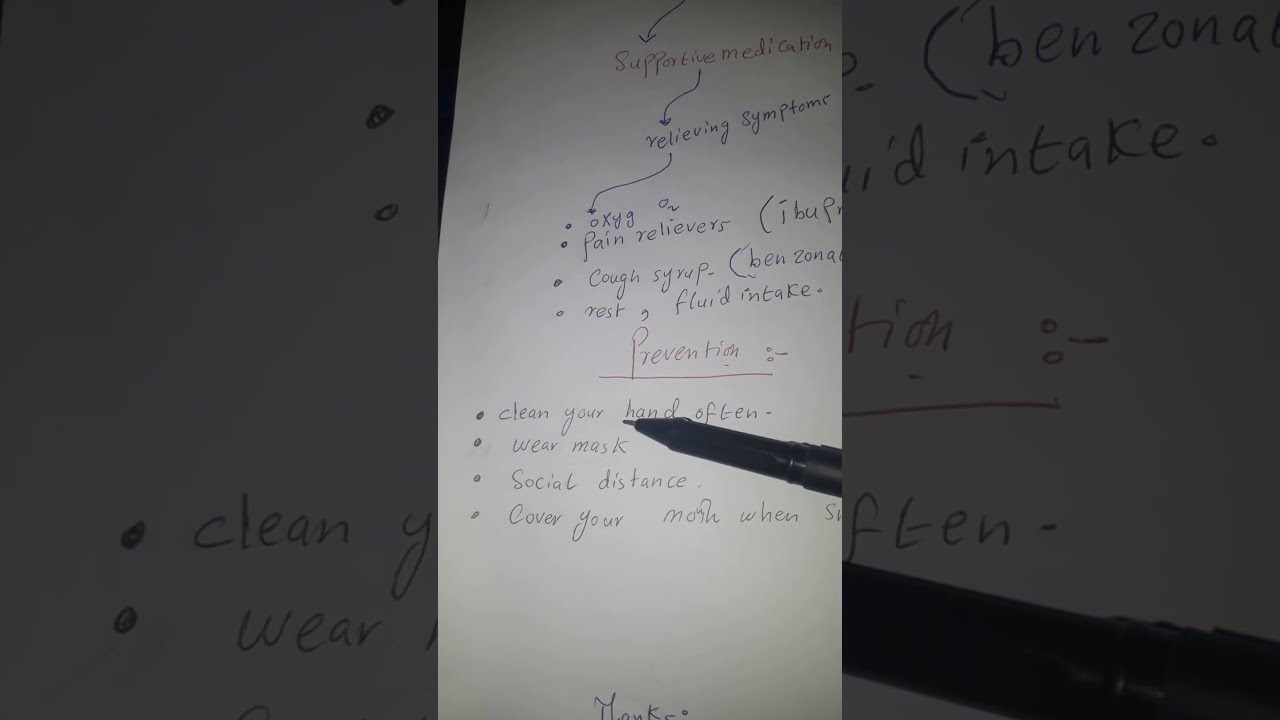 Supportive medication
relieving symptoms
• oxyg O₂
• Pain relievers (ibupr
• Cough syrup. (benzonat
• rest, fluid intake.
Prevention :-
• clean your hand often-
• wear mask
• Social distance.
• Cover your when
Thanks.